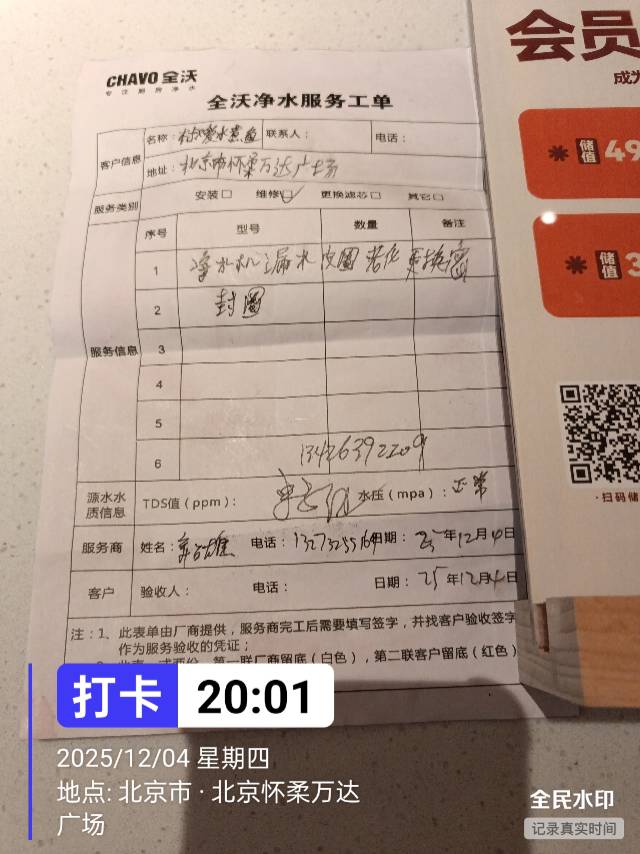 CHAVO 全沃
专注厨房净水
全沃净水服务工单
客户信息
名称: 水煮鱼 联系人: 电话:
地址: 北京市怀柔万达广场
服务类别 安装□ 维修☑ 更换滤芯□ 其它□
服务信息
序号 型号 数量 备注
1 净水机漏水 皮圈老化 更换密
2 封圈
3
4
5
6 13426392209
源水水质信息 TDS值(ppm): 水压(mpa): 正常
服务商 姓名: 电话: 日期: 25年12月4日
客户 验收人: 电话: 日期: 25年12月4日
注:1、此表单由厂商提供,服务商完工后需要填写签字,并找客户验收签字
作为服务验收的凭证;
第一联厂商留底(白色),第二联客户留底(红色)
会员
成为
储值 49
储值 3
·扫码储
打卡 20:01
2025/12/04 星期四
地点: 北京市·北京怀柔万达
广场
全民水印
记录真实时间